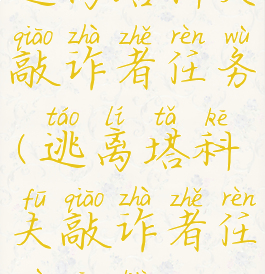 qiāo zhà zhě rèn wù
敲诈者任务
táo lí tǎ kē
(逃离塔科
fū qiāo zhà zhě rèn
夫敲诈者任